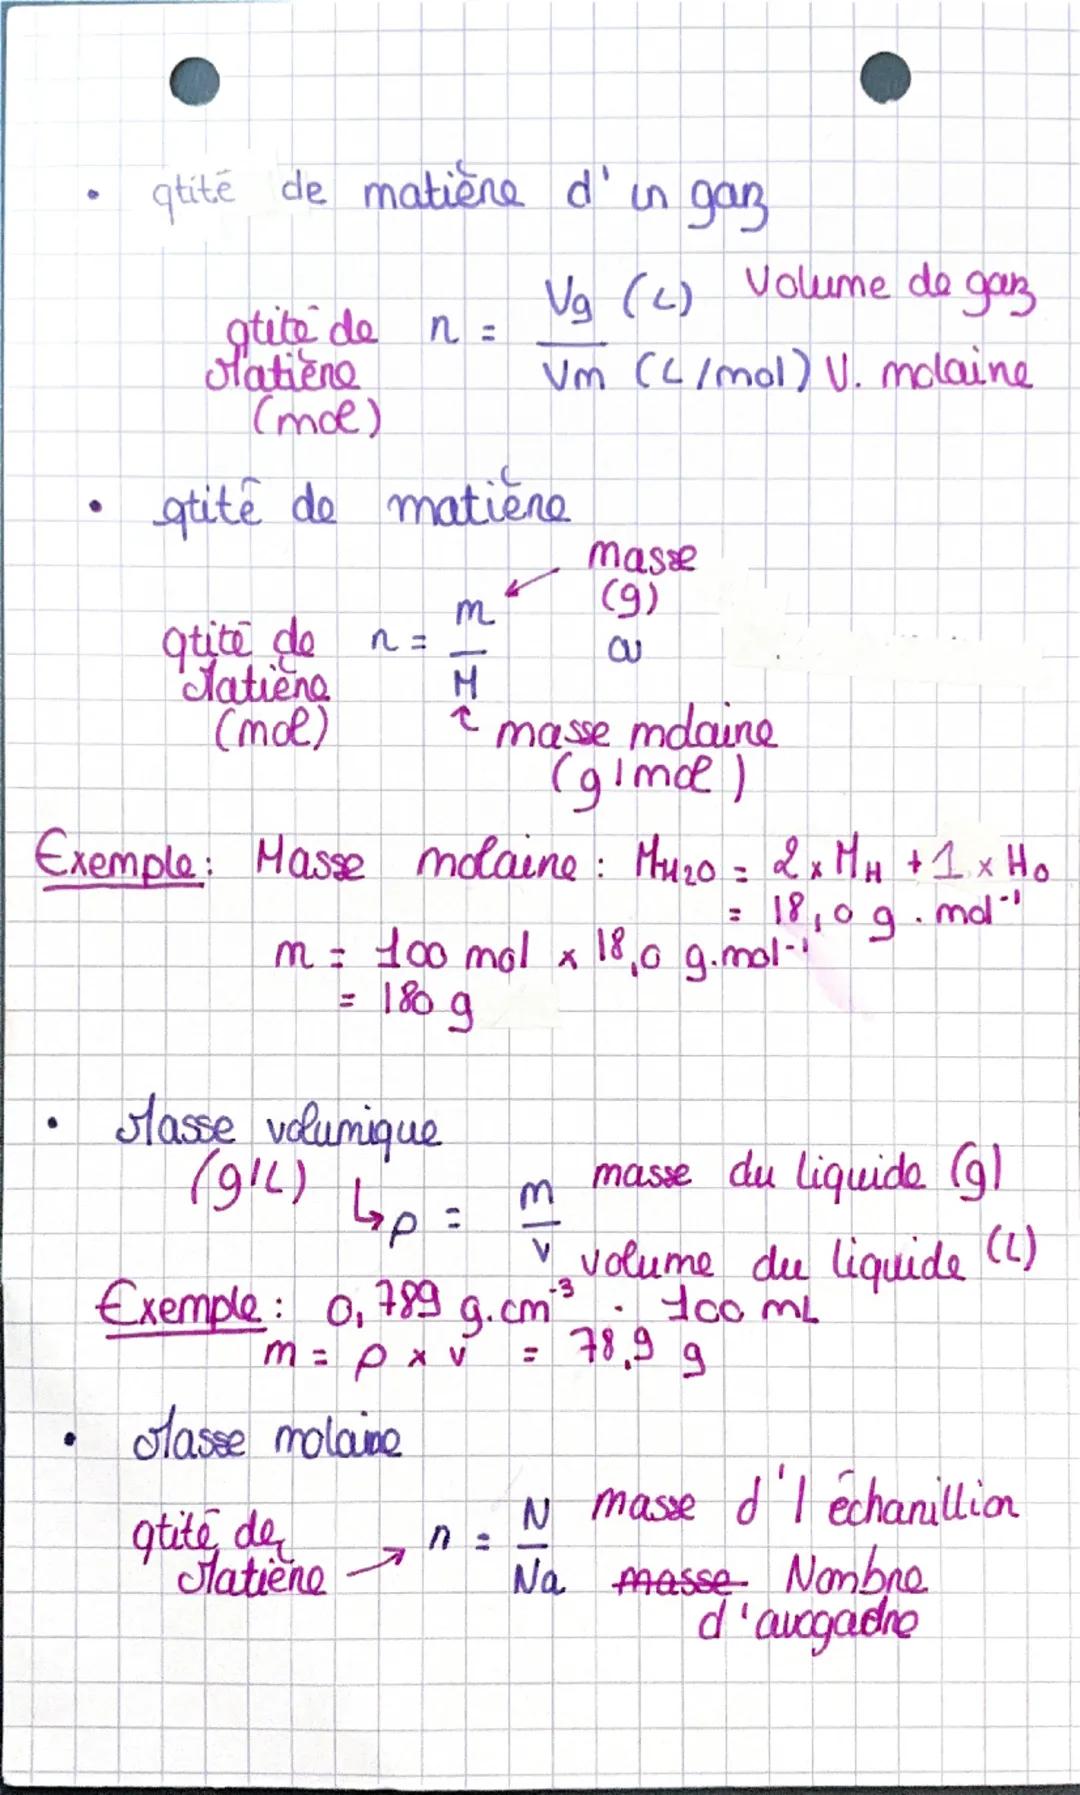 • qtité de matière d'un gaz
Vg (L) Volume de gaz
qtité de n =
Matière Vm (L/mol) V. molaire
(mol)
• qtité de matière
masse
m (g)
qtité de n = ou
Matière M
(mol) ↑ masse molaire
(g/mol)
Exemple: Masse molaire : MH2O = 2 x MH + 1 x MO
= 18,0 g . mol⁻¹
m = 100 mol x 18,0 g.mol⁻¹
= 180 g
• Masse volumique
(g/L) ↳ ρ = m masse du liquide (g)
v volume du liquide (L)
Exemple : 0,789 g.cm⁻³ . 100 mL
m = ρ x v = 78,9 g
• Masse molaire
qtité de → n = N masse d'l échanillion
Matière Na masse Nombre
d'avogadro